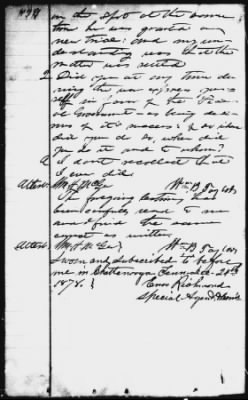 in the Spot at the
tion he was granted a
new trial. And my un-
derstanding was that the
matter was settled
Q. Did you at any time du-
ring the war express your-
self in favor of the Fed-
eral Government as being desir-
ous of it's success: & if so when
did you do so, where did
you do it and to whom?
A. I don't recollect that
I ever did.
Attest: Wm B. Taylor
The forgoing testimony has
been carefully read to me
and I find the same
correct as written.
Attest: Wm B. Taylor
Sworn and subscribed to before
me in Chattanooga Tenn. Dec. 28th
1878.
Enos Richmond
Special Agent